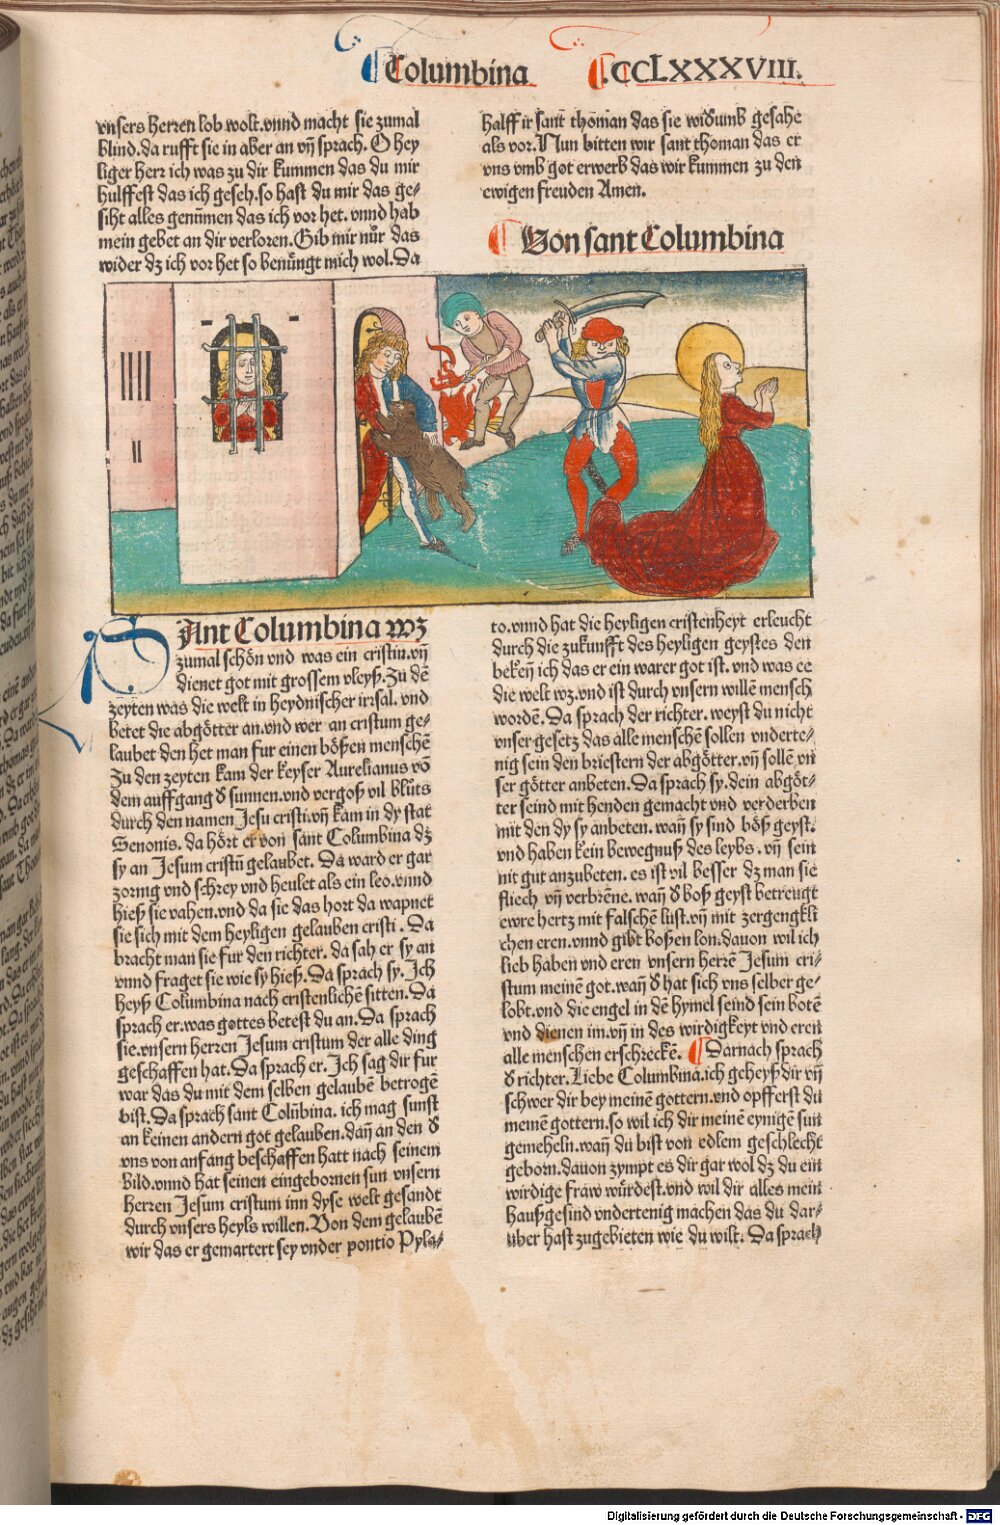 Columbina
.CCLXXXVIII.
vnsers herren lob wolt.vnnd macht sie zumal
blind.da rufft sie in aber an vn̄ sprach. O hey
liger herr ich was zu dir kummen das du mir
hulffest das ich geseh.so hast du mir das ge⸗
siht alles genūmen das ich vor het. vnnd hab
mein gebet an dir verloren.Gib mir nůr das
wider dz ich vor het so benůngt mich wol.Da
halff ir sant thoman das sie widumb gesahe
als vor. Nun bitten wir sant thoman das er
vns vmb got erwerb das wir kummen zu den
ewigen freuden Amen.
Von sant Columbina
SAnt Columbina wz
zumal schön vnd was ein cristin.vn̄
dienet got mit grossem vleyß.Zů dē
zeyten was die welt in heydnischer irrsal. vnd
betet die abgötter an.vnd wer an cristum ge⸗
laubet den het man fur einen bößen menschē
Zu den zeyten kam der keyser Aurelianus vō
dem auffgang d̄ sunnen.vnd vergoß vil blůts
durch den namen Jesu cristi.vn̄ kam in dy stat
Senonis. da hört er von sant Columbina dz
sy an Jesum cristū gelaubet. Da ward er gar
zornig vnd schrey vnd heulet als ein leo.vnnd
hieß sie vahen.vnd da sie das hort da wapnet
sie sich mit dem heyligen gelauben cristi . Da
bracht man sie fur den richter. da sah er sy an
vnnd fraget sie wie sy hieß. Da sprach sy. Ich
heyß Columbina nach cristenlichē sitten. Da
sprach er.was gottes betest du an. Da sprach
sie.vnsern herren Jesum cristum der alle ding
geschaffen hat. Da sprach er. Ich sag dir fur
war das du mit dem selben gelaubē betrogē
bist. Da sprach sant Colūbina. ich mag sunst
an keinen andern got gelauben.dan̄ an den d̄
vns von anfang beschaffen hatt nach seinem
bild.vnnd hat seinen eingebornen sun vnsern
herren Jesum cristum inn dyse welt gesandt
durch vnsers heyls willen. Von dem gelaubē
wir das er gemartert sey vnder pontio Pyla⸗
to.vnnd hat die heyligen cristenheyt erleucht
durch die zukunfft des heyligen geystes den
beken̄ ich das er ein warer got ist. vnd was ee
die welt wz.vnd ist durch vnsern willē mensch
wordē. Da sprach der richter. weyst du nicht
vnser gesetz das alle menschē sollen vnderte⸗
nig sein den briestern der abgötter.vn̄ sollē vn
ser götter anbeten. Da sprach sy.dein abgöt⸗
ter seind mit henden gemacht vnd verderben
mit den dy sy anbeten. wan̄ sy sind böß geyst.
vnd haben kein bewegnuß des leybs. vn̄ sein
nit gut anzubeten. es ist vil besser dz man sie
fliech vn̄ verbrēne. wan̄ d̄ boß geyst betreugt
ewre hertz mit falschē lust.vn̄ mit zergengkli
chen eren.vnnd gibt boßen lon.dauon wil ich
lieb haben vnd eren vnsern herrē Jesum cri⸗
stum meinē got.wan̄ d̄ hat sich vns selber ge⸗
lobt.vnd die engel in dē hymel seind sein botē
vnd dienen im.vn̄ in des wirdigkeyt vnd eren
alle menschen erschreckē. Darnach sprach
d̄ richter. Liebe Columbina.ich geheyß dir vn̄
schwer dir bey meinē gottern.vnd opfferst du
meinē gottern.so wil ich dir meinē eynigē sun
gemeheln.wan̄ du bist von edlem geschlecht
geborn.dauon zympt es dir gar wol dz du ein
wirdige fraw würdest.vnd wil dir alles mein
haußgesind vndertenig machen das du dar⸗
uber hast zugebieten wie du wilt. Da sprach
Digitalisierung gefördert durch die Deutsche Forschungsgemeinschaft - DFG